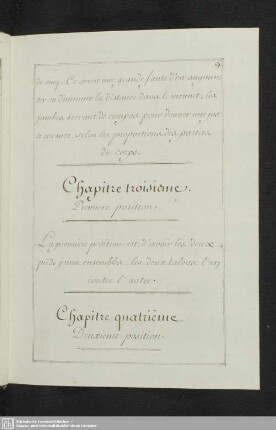 9
de cinq. Ce seroit une grande faute d'en augmen
ter ou diminuer la distance dans le menuet, les
jambes servant de compas pour donner une jus
te mesure, selon les proportions des parties
du corps.
Chapitre troisieme.
Premiere position.
La premiere position est, d'avoir les deux
pieds joins ensembles, les deux talons l'un
contre l'autre.
Chapitre quatriéme
Deuxiéme position.